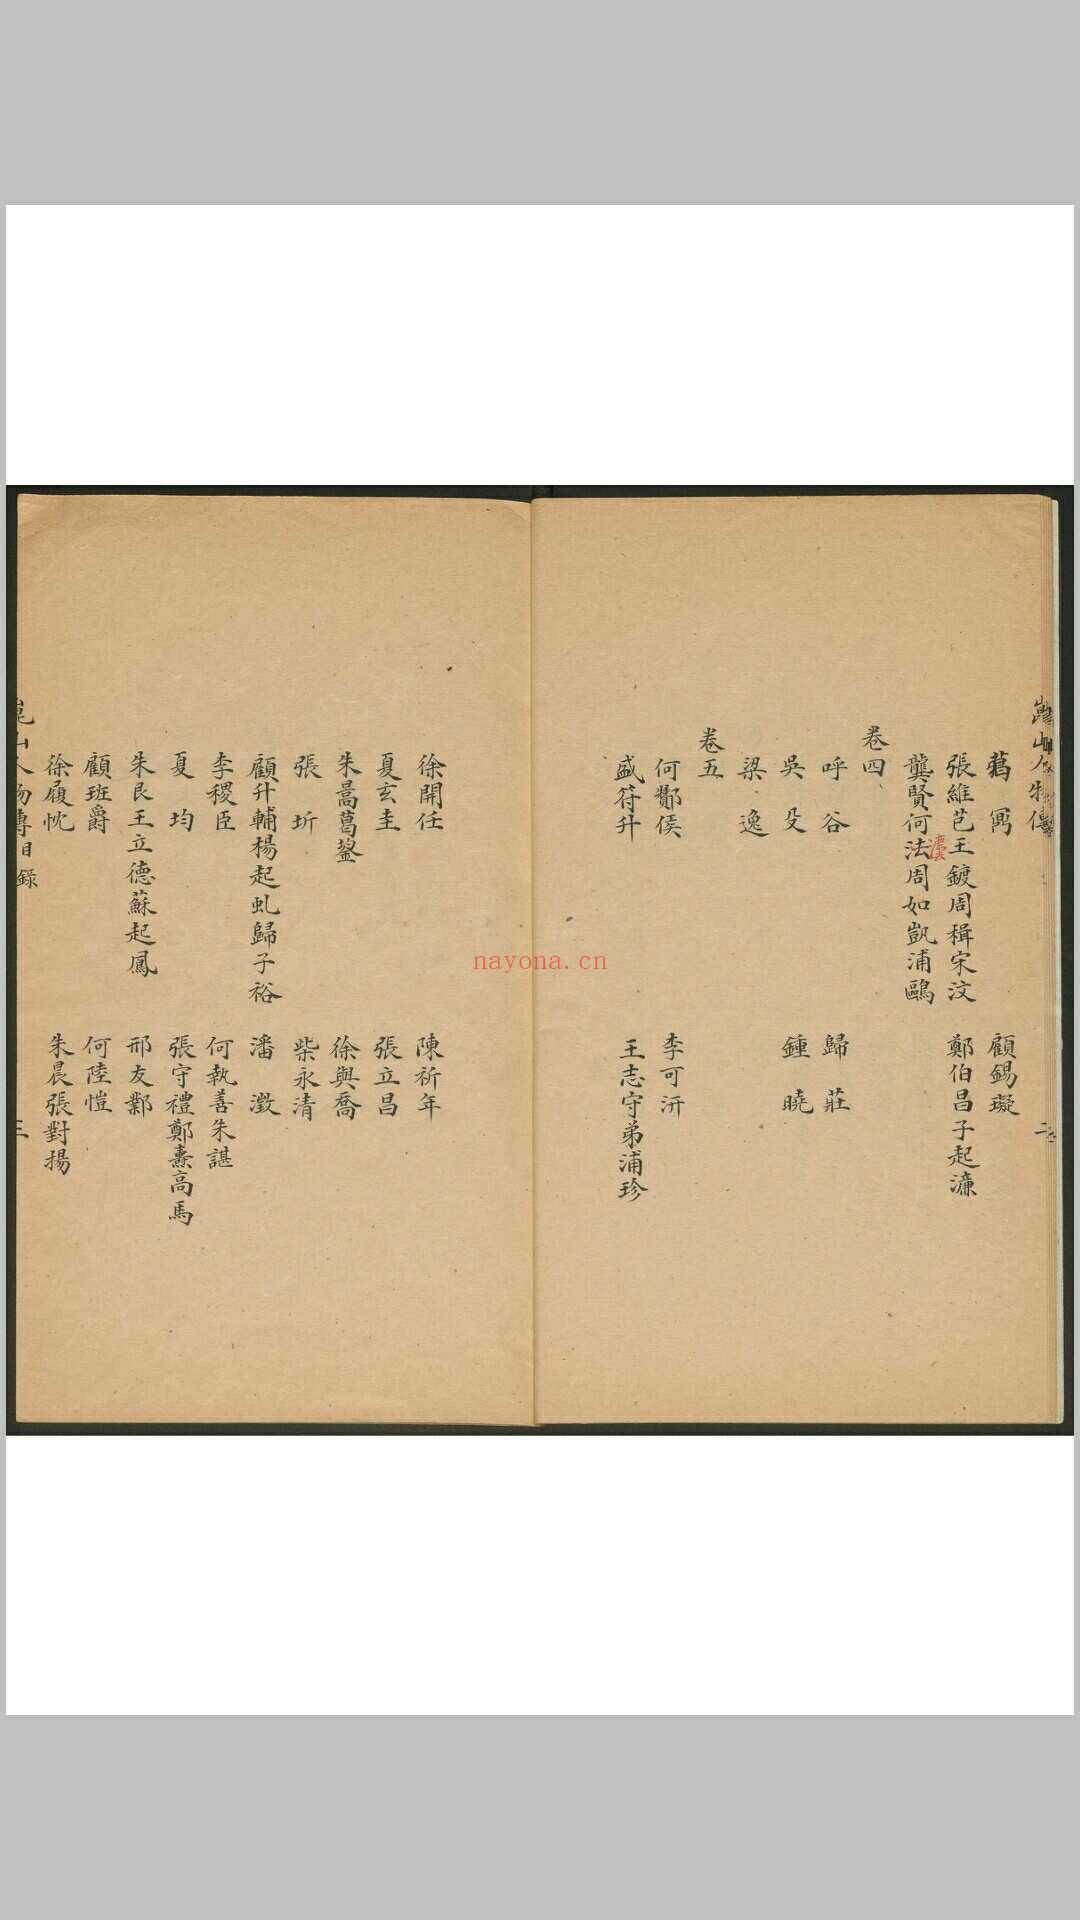 崑山人物傳
顧錫璇
張維芑王鍍周楫宋汶
鄭伯昌子起濂
龔賢何法周如凱浦鷗
濂
卷四
呼谷
歸莊
吳殳
鍾曉
梁逸
卷五
何鄷侯
李可汧
盛符升
王志守弟浦珍
徐開任
陳祈年
夏玄圭
張立昌
朱暠
徐與喬
張圻
柴永清
顧升輔楊起虬歸子裕
潘澂
李稷臣
何執善朱諶
夏均
張守禮鄭燾高馬
朱艮王立德蘇起鳳
邢友鄴
顧班爵
何陸愷
徐履忱
朱晨張對揚
崑山人物傳目錄
三
nayona.cn